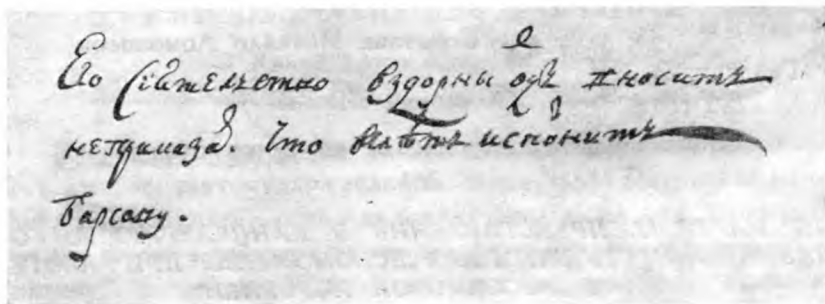 Его Сїятелство вздорных одъ вносить
неприказал. Что велѣть исполнить
Барсову.